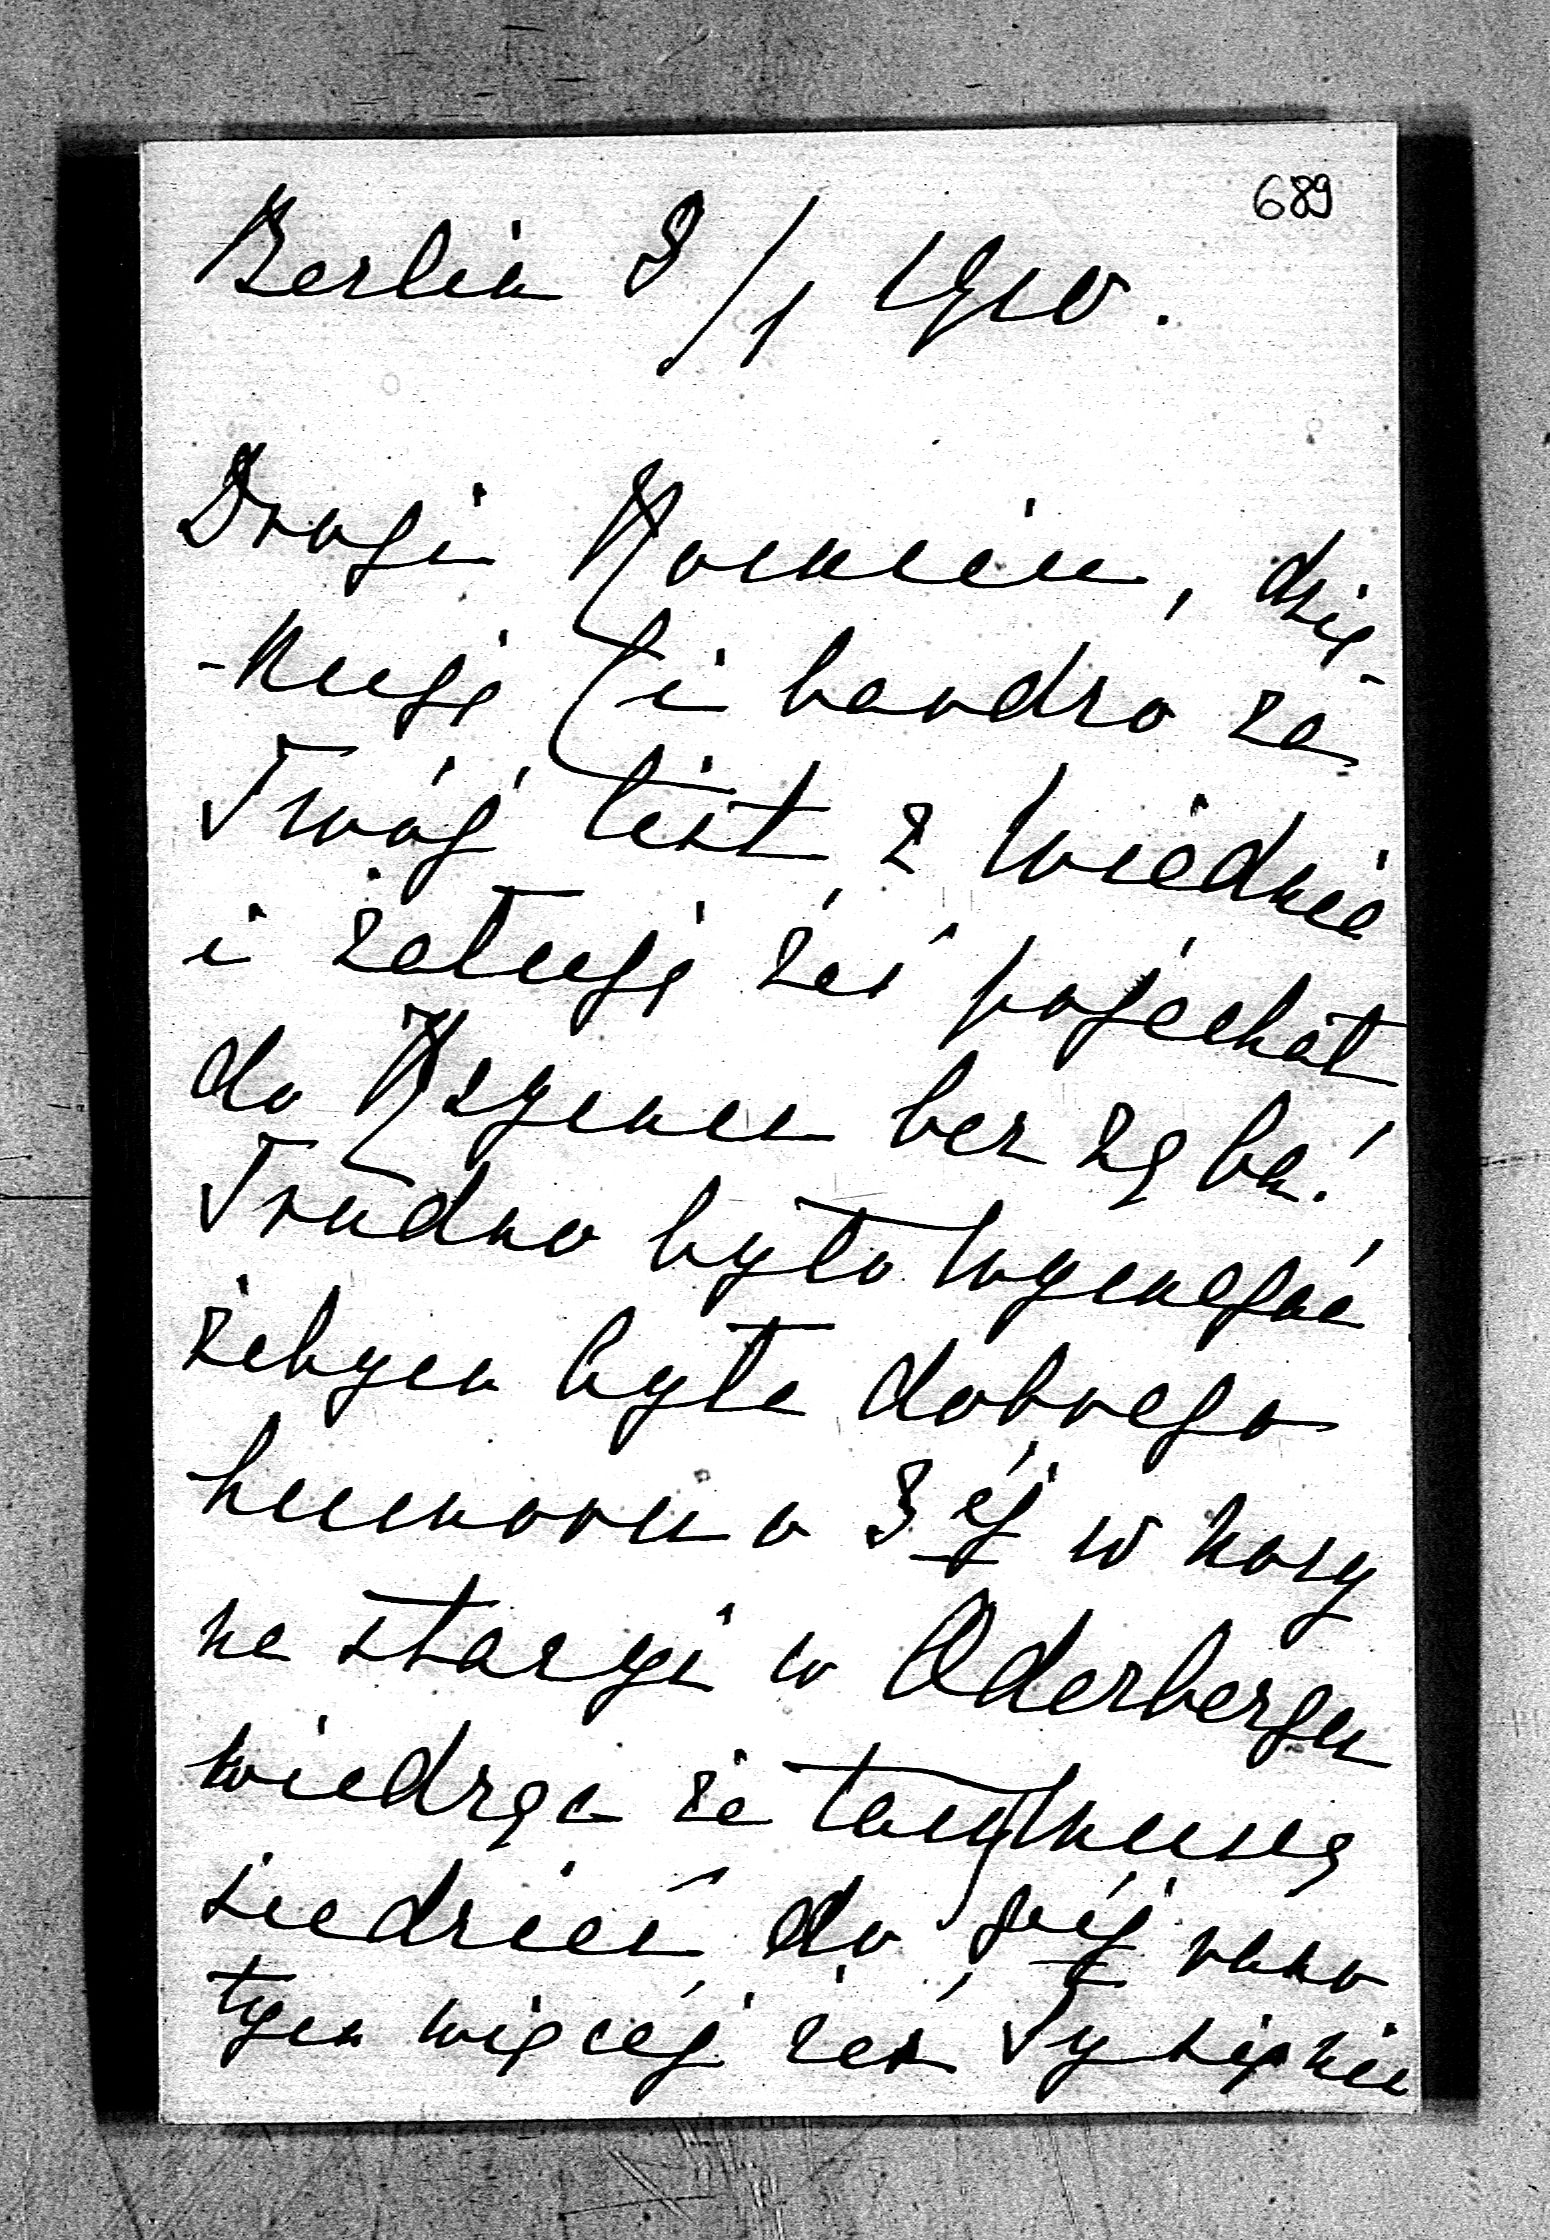 689
Berlin 3/1 1910.
Drogi Kocniu, dzię-
-kuję Ci bardzo za
Twój list z Wiednia
i żałuję żeś pojechał
do Rzymu bez zęba!
Trudno było wymagać
żebym była dobrego
humoru o 3ej w nocy
na stacyi w Oderbergu
wiedząc że tam muszę
siedzieć do 7ej rano
tym więcej żeś Ty się nie